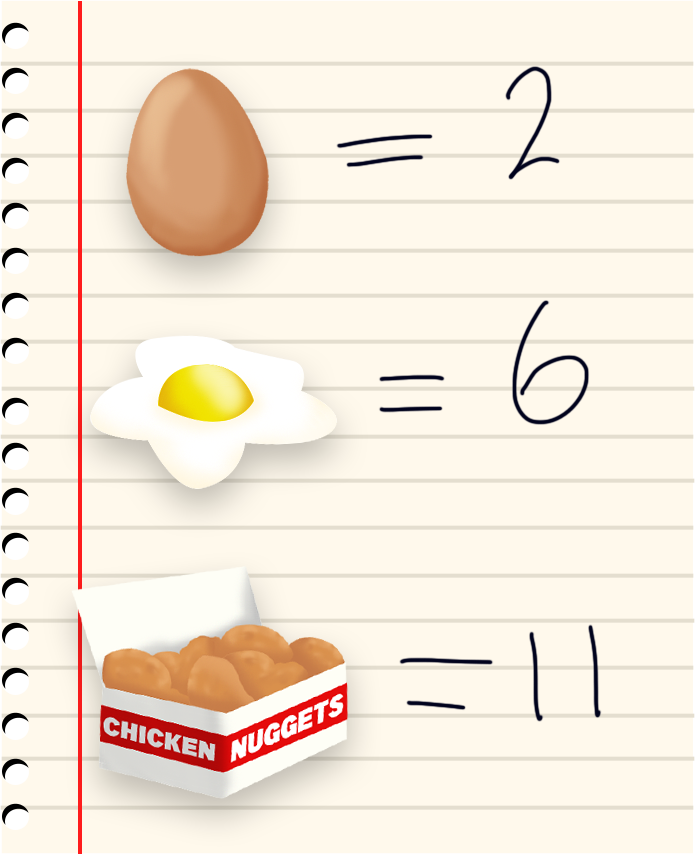 = 2
= 6
CHICKEN NUGGETS
= 11